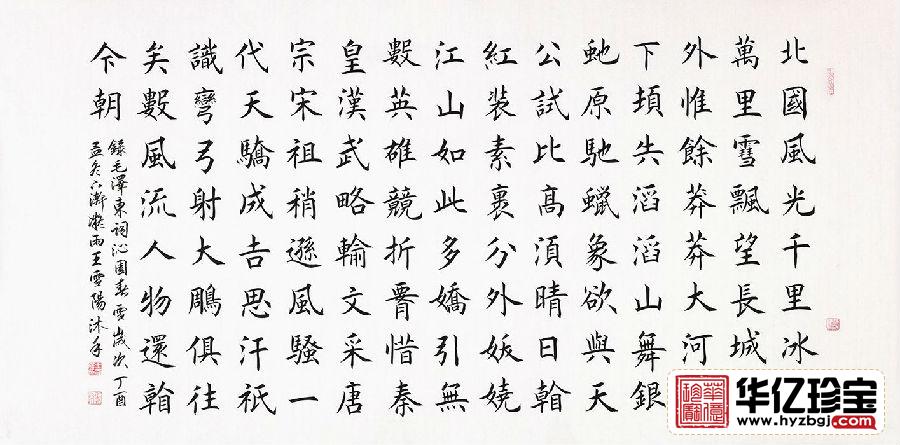 北國風光千里冰
萬里雪飄望長城
外惟餘莽莽大河
下頓失滔滔山舞銀
虵原馳蠟象欲與天
公試比髙湏晴日看
紅裝素裹分外妖嬈
江山如此多嬌引無
數英雄競折腰惜秦
皇漢武略輸文采唐
宗宋祖稍遜風騷一
代天驕成吉思汗祇
識彎弓射大雕俱往
矣數風流人物還看
今朝
錄毛澤東詞沁園春雪歲次丁酉
孟冬雨王雪陽沐手
华亿珍宝
www.hyzbgj.com